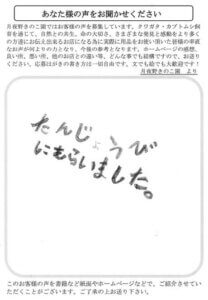 あなた様の声をお聞かせください
月夜野きのこ園ではお客様の声を募集しています。クワガタ・カブトムシ飼
育を通じて、自然との共生、命の大切さ、さまざまな発見と感動をより多く
の方達にお伝え出来るお店になる為に実際に用品をお使い頂いた皆様の率直
なお声が何よりの力となり、今後の参考となります。ホームページの感想、
良い所、悪い所、他のお店との違い等、どんな事でも結構ですので、お送り
ください。応募はがきの書き方は一切自由です。文でも絵でも大歓迎です！
月夜野きのこ園 より
たんじょうび
にもらいました。
このお客様の声を書籍など紙面やホームページなどで、ご紹介させてい
ただくことがございます。ご了承の上お送り下さい。